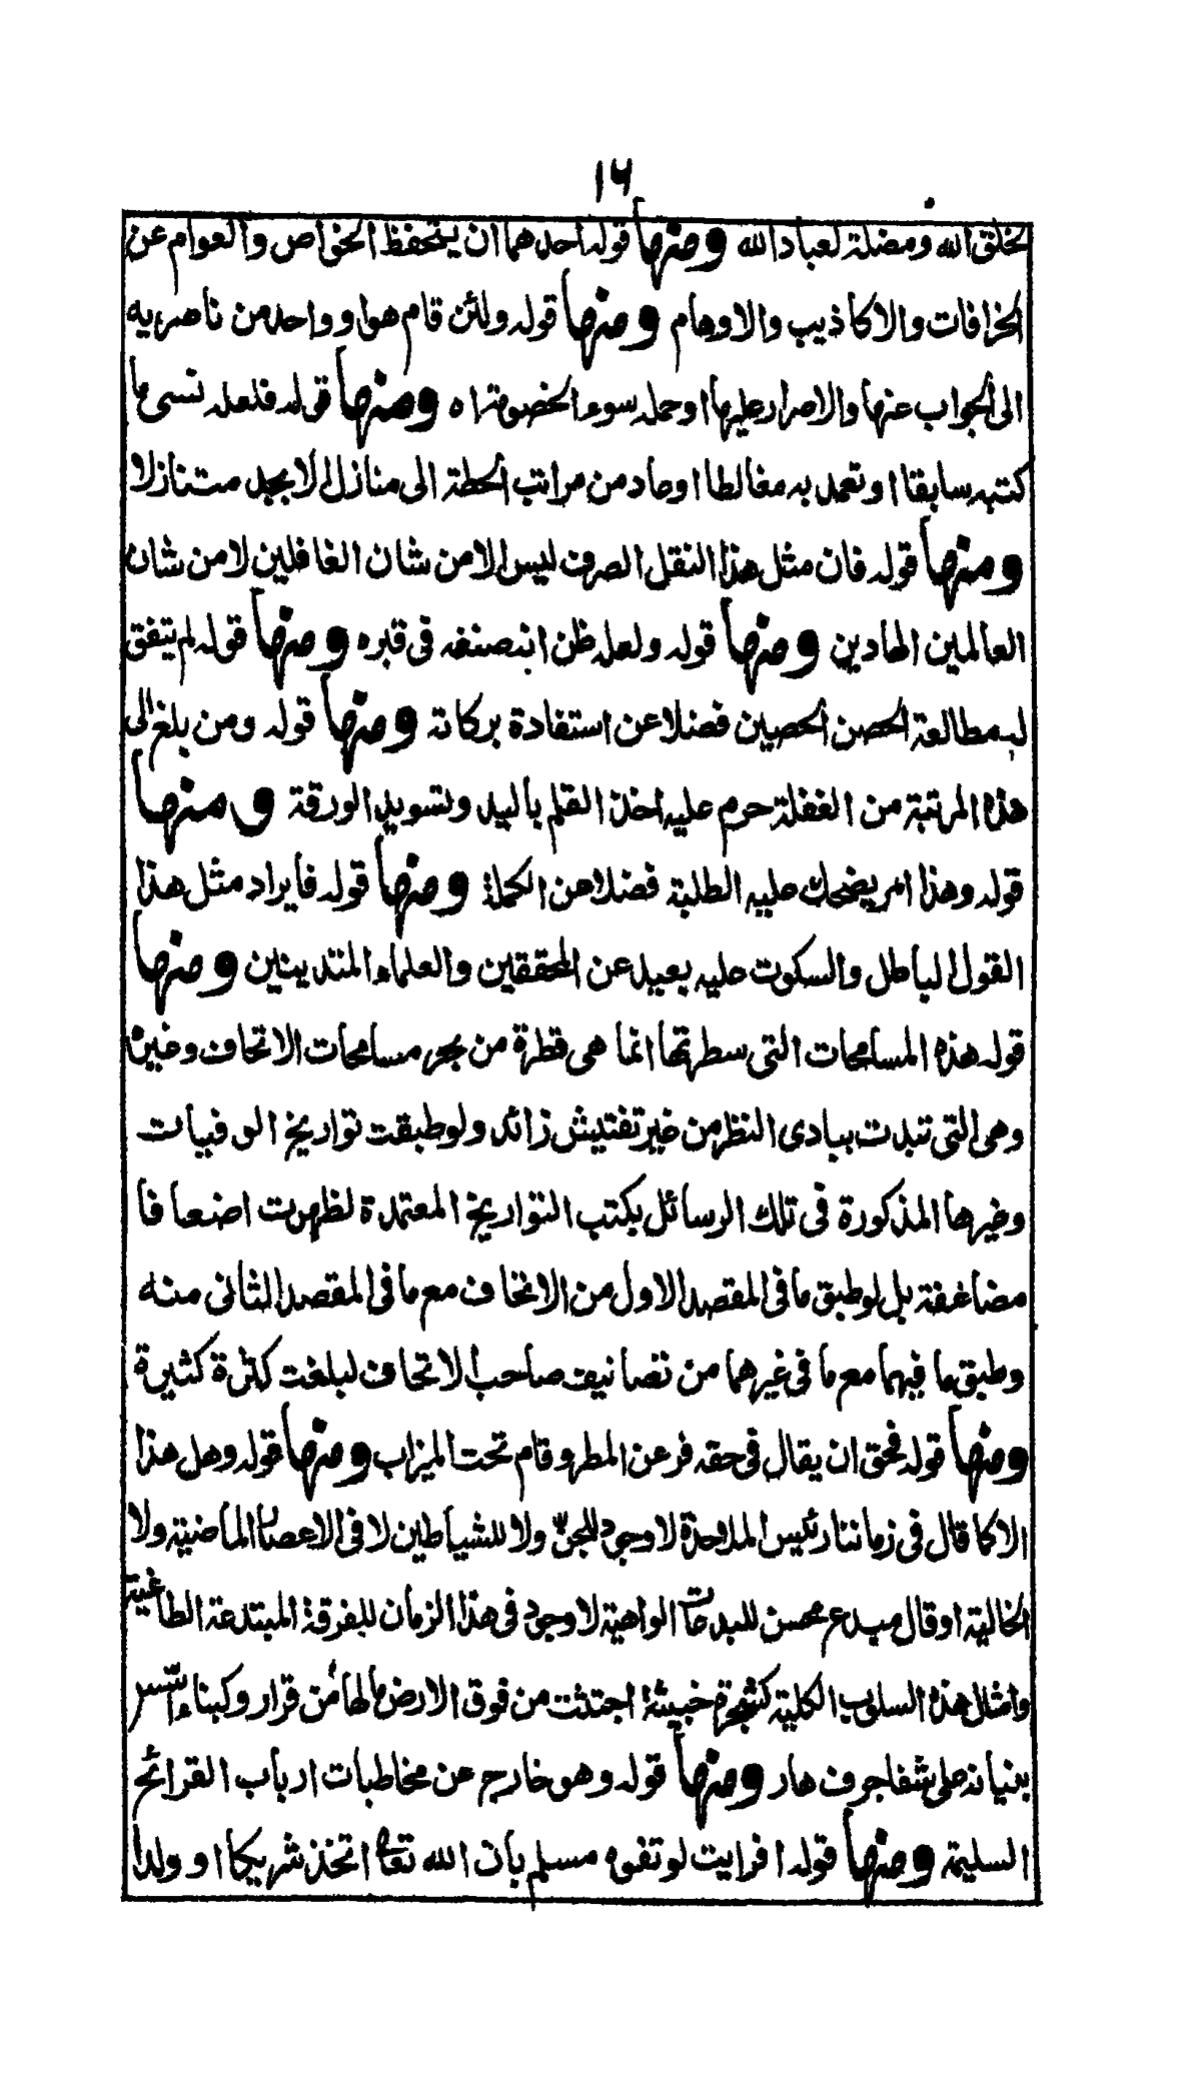 ١٦
لخلق الله ومضلة لعباد الله ومنها قوله احدهما ان يتحفظ الخواص والعوام عن
الخرافات والاكاذيب والاوهام ومنها قوله ولئن قام هو او واحد من ناصريه
الى الجواب عنها والاصرار عليها او حمله سوء الخصومة اه ومنها قوله فلعله نسى ما
كتبه سابقا او تعمد به مغالطا او حاد من مراتب الحطة الى منازل الابجد متنازلا
ومنها قوله فان مثل هذا النقل الصرف ليس الا من شان الغافلين لا من شان
العالمين الهادين ومنها قوله ولعله ظن انه صنفه فى قبره ومنها قوله لم يتفق
له مطالعة الحصن الحصين فضلا عن استفادة بركاته ومنها قوله ومن بلغ الى
هذه المرتبة من الغفلة حرم عليه اخذ القلم باليد وتسويد الورقة ومنها
قوله وهذا امر يضحك عليه الطلبة فضلا عن الكملة ومنها قوله فايراد مثل هذا
القول الباطل والسكوت عليه بعيد عن المحققين والعلماء المتدينين ومنها
قوله هذه المسامحات التى سطرتها انما هى قطرة من بحر مسامحات الاتحاف وغيره
وهى التى تبدت ببادى النظر من غير تفتيش زائد ولو طبقت تواريخ الوفيات
وغيرها المذكورة فى تلك الرسائل بكتب التواريخ المعتمدة لظهرت اضعافا
مضاعفة بل لو طبق ما فى المقصد الاول من الاتحاف مع ما فى المقصد الثانى منه
وطبق ما فيهما مع ما فى غيرهما من تصانيف صاحب الاتحاف لبلغت كثرة كثيرة
ومنها قوله فحق ان يقال فى حقه فر عن المطر وقام تحت الميزاب ومنها قوله وهل هذا
الا كما قال فى زماننا رئيس الملاحدة لا وجود للجن ولا للشياطين لا فى الاعصار الماضية ولا
الخالية او قال مبدع محسن للبدعات الواهية لا وجود فى هذا الزمان للفرقة المبتدعة الطاغية
وامثال هذه السلوب الكلية كشجرة خبيثة اجتثت من فوق الارض مالها من قرار وكبناء اسس
بنيانه على شفا جرف هار ومنها قوله وهو خارج عن مخاطبات ارباب القرائح
السليمة ومنها قوله افرايت لو تفوه مسلم بان الله تعالى اتخذ شريكا او ولدا